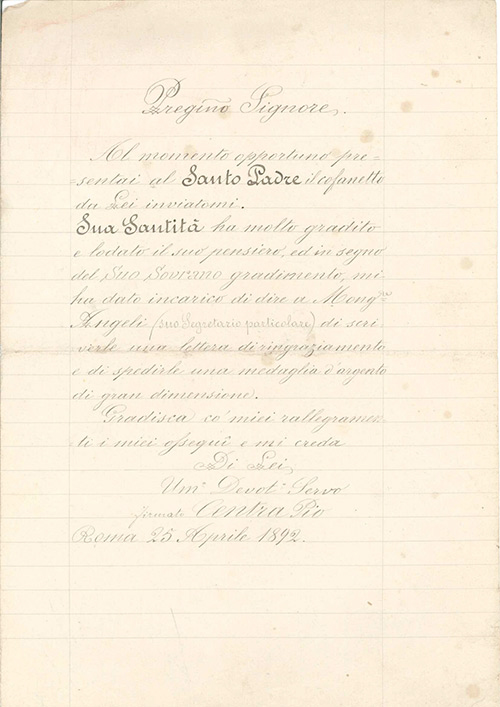 Pregiño Signore.
Al momento opportuno pre=
=sentai al Santo Padre il cofanetto
da Lei inviatomi.
Sua Santità ha molto gradito
e lodato il suo pensiero, ed in segno
del Suo Sovrano gradimento, mi
ha dato incarico di dire a Mong.re
Angeli (suo Segretario particolare) di scri=
verle una lettera di ringraziamento
e di spedirle una medaglia d'argento
di gran dimensione.
Gradisca co' miei rallegramen=
ti i miei ossequi e mi creda
Di Lei,
Um.o Devot.o Servo
firmato Centra Pio
Roma 25 Aprile 1892.